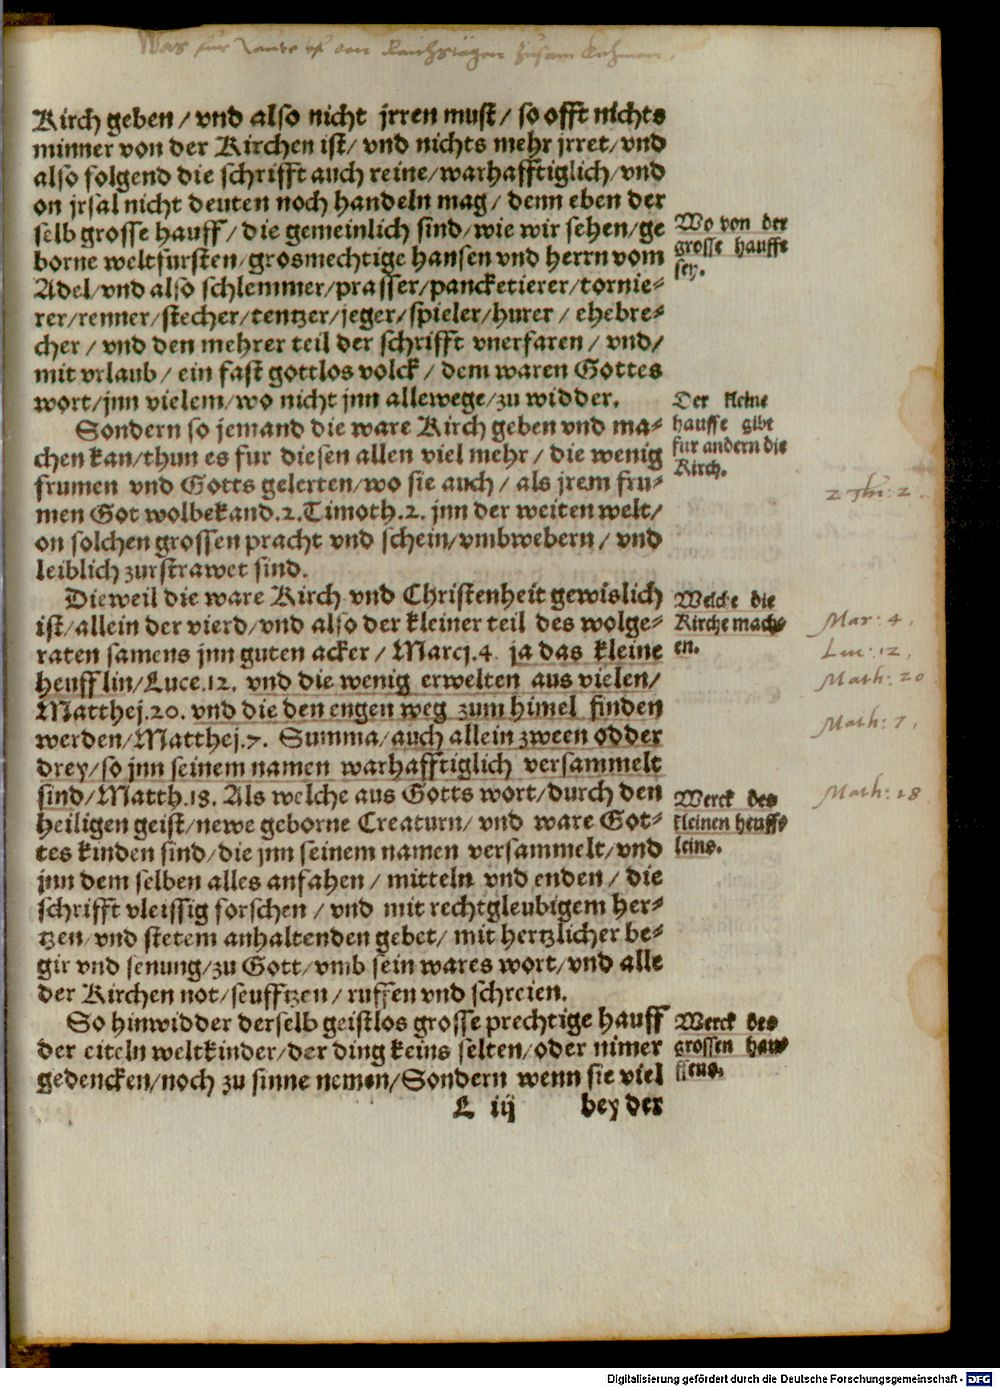 Was für Leute vf den Reichstägen zusam kohmen.
Kirch geben / vnd also nicht jrren must / so offt nichts
minner von der Kirchen ist / vnd nichts mehr jrret / vnd
also folgend die schrifft auch reine / warhafftiglich / vnd
on jrsal nicht deuten noch handeln mag / denn eben der
selb grosse hauff / die gemeinlich sind / wie wir sehen / ge
borne weltfursten / grosmechtige hansen vnd herrn vom
Adel / vnd also schlemmer / prasser / pancketierer / tornie-
rer / renner / stecher / tentzer / jeger / spieler / hurer / ehebre-
cher / vnd den mehrer teil der schrifft vnerfaren / vnd /
mit vrlaub / ein fast gottlos volck / dem waren Gottes
wort / jnn vielem / wo nicht jnn allewege / zu widder.
Wo von der
grosse hauffe
sey.
Sondern so jemand die ware Kirch geben vnd ma-
chen kan / thun es fur diesen allen viel mehr / die wenig
frumen vnd Gotts gelerten / wo sie auch / als jrem fru-
men Got wolbekand. 2. Timoth. 2. jnn der weiten welt /
on solchen grossen pracht vnd schein / vmbwebern / vnd
leiblich zurstrawet sind.
Der kleine
hauffe gibt
fur andern die
Kirch.
2 Thi: 2.
Dieweil die ware Kirch vnd Christenheit gewislich
ist / allein der vierd / vnd also der kleiner teil des wolge-
raten samens jnn guten acker / Marcj. 4 ja das kleine
heufflin / Luce. 12. vnd die wenig erwelten aus vielen /
Matthej. 20. vnd die den engen weg zum himel finden
werden / Matthej. 7. Summa / auch allein zween odder
drey / so jnn seinem namen warhafftiglich versammelt
sind / Matth. 18. Als welche aus Gotts wort / durch den
heiligen geist / newe geborne Creaturn / vnd ware Got-
tes kinden sind / die jnn seinem namen versammelt / vnd
jnn dem selben alles anfahen / mitteln vnd enden / die
schrifft vleissig forschen / vnd mit rechtgleubigem her-
tzen / vnd stetem anhaltenden gebet / mit hertzlicher be-
gir vnd senung / zu Gott / vmb sein wares wort / vnd alle
der Kirchen not / seufftzen / ruffen vnd schreien.
Welche die
Kirche mach-
en.
Mar: 4.
Luc: 12.
Math: 20
Math: 7.
Math: 18
Werck des
kleinen heuff-
leins.
So hinwidder derselb geistlos grosse prechtige hauff
der eiteln weltkinder / der ding keins selten / oder nimer
gedencken / noch zu sinne nemen / Sondern wenn sie viel
Werck des
grossen hau-
ffens.
L iij bey der
Digitalisierung gefördert durch die Deutsche Forschungsgemeinschaft - DFG